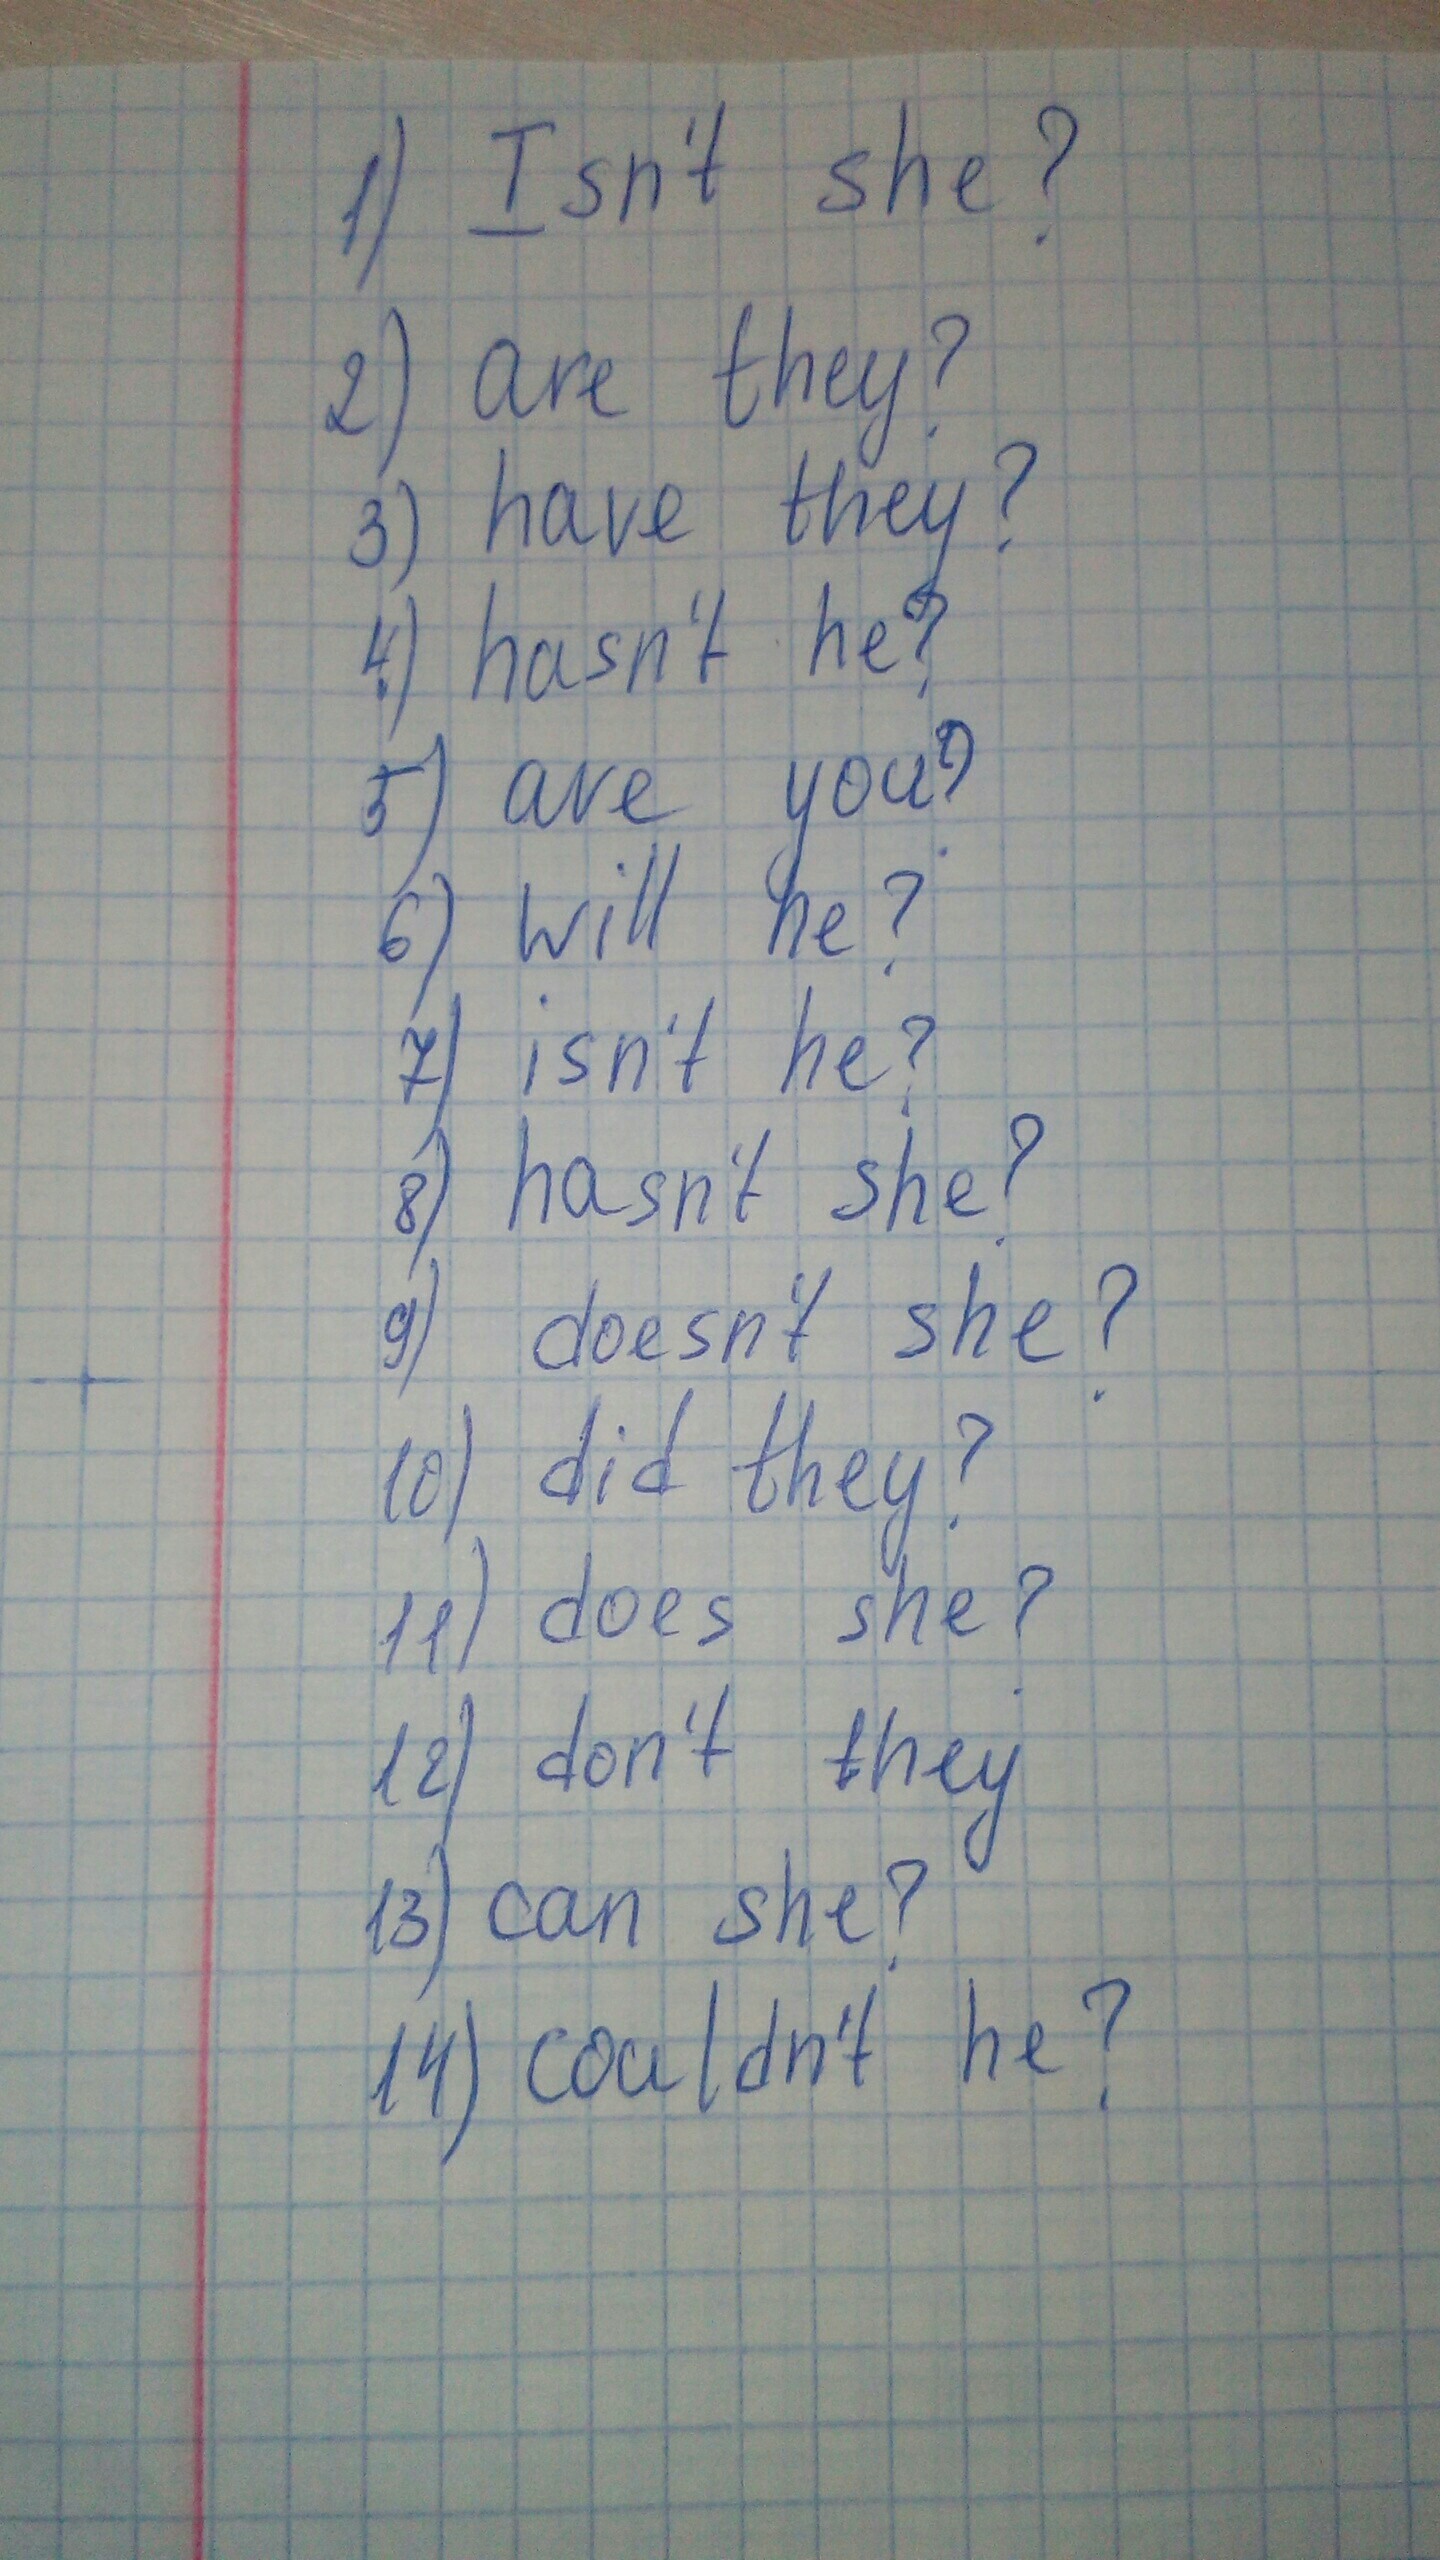 1) Isn't she?
2) are they?
3) have they?
4) hasn't he?
5) are you?
6) will he?
7) isn't he?
8) hasn't she?
9) doesn't she?
10) did they?
11) does she?
12) don't they
13) can she?
14) couldn't he?